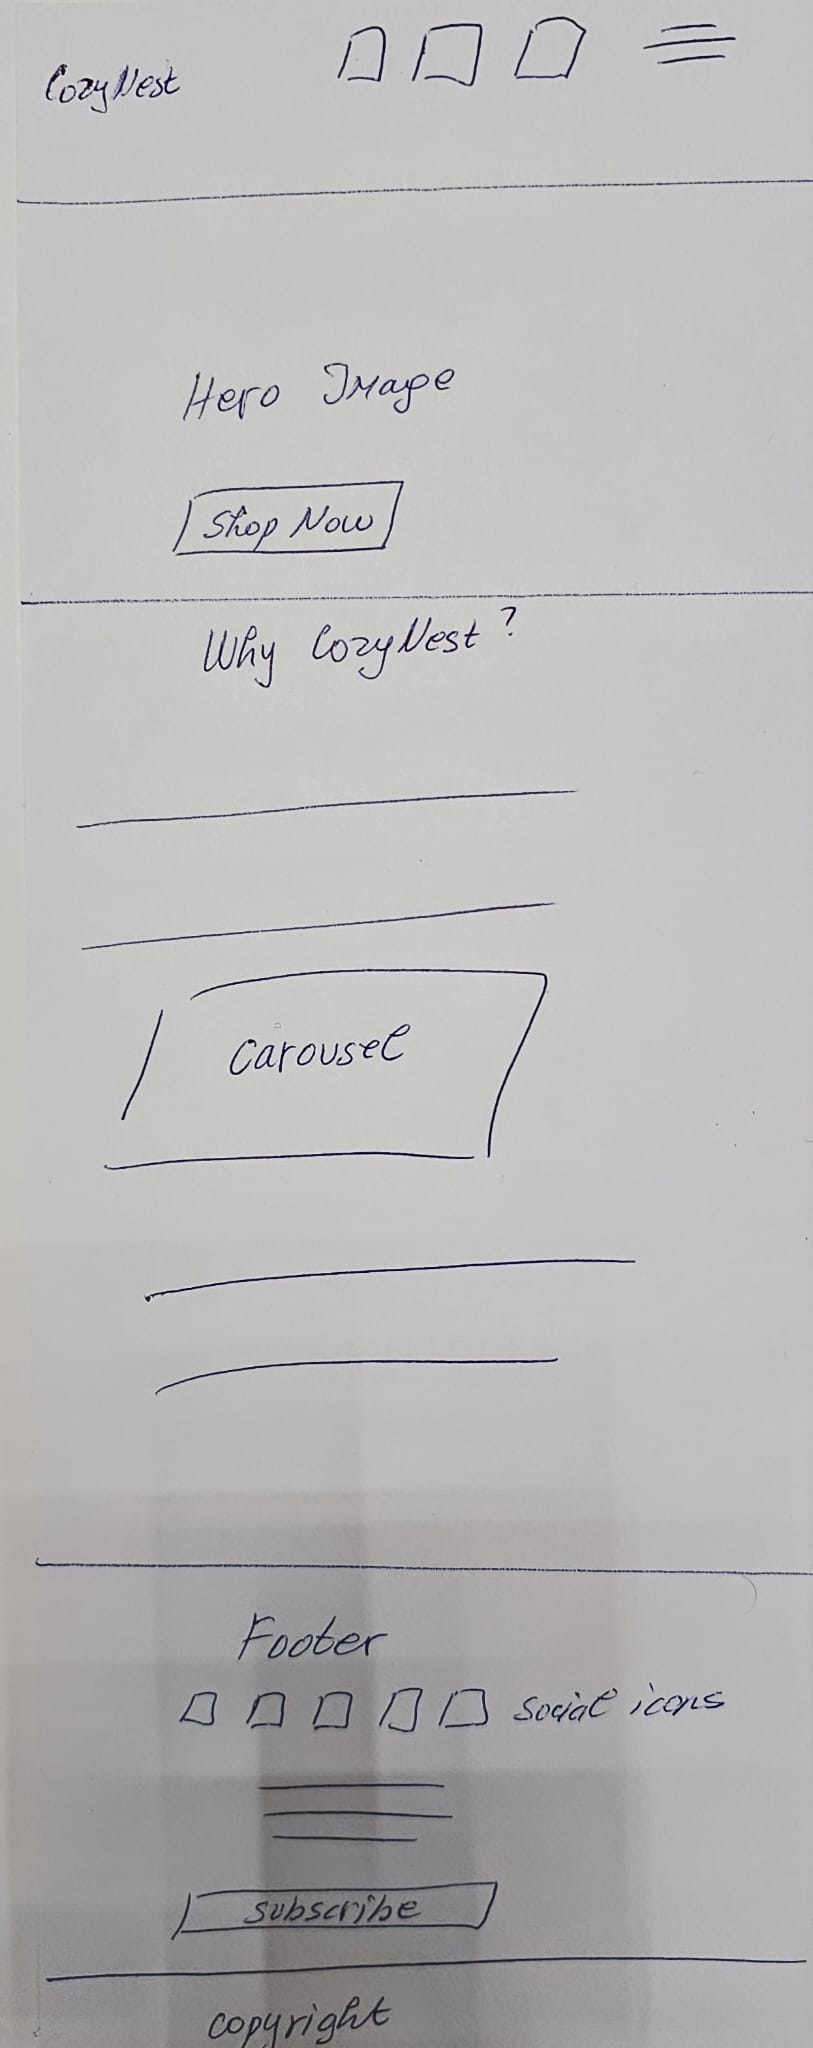 CozyNest
Hero Image
Shop Now
Why CozyNest?
Carousel
Footer
Social icons
Subscribe
Copyright